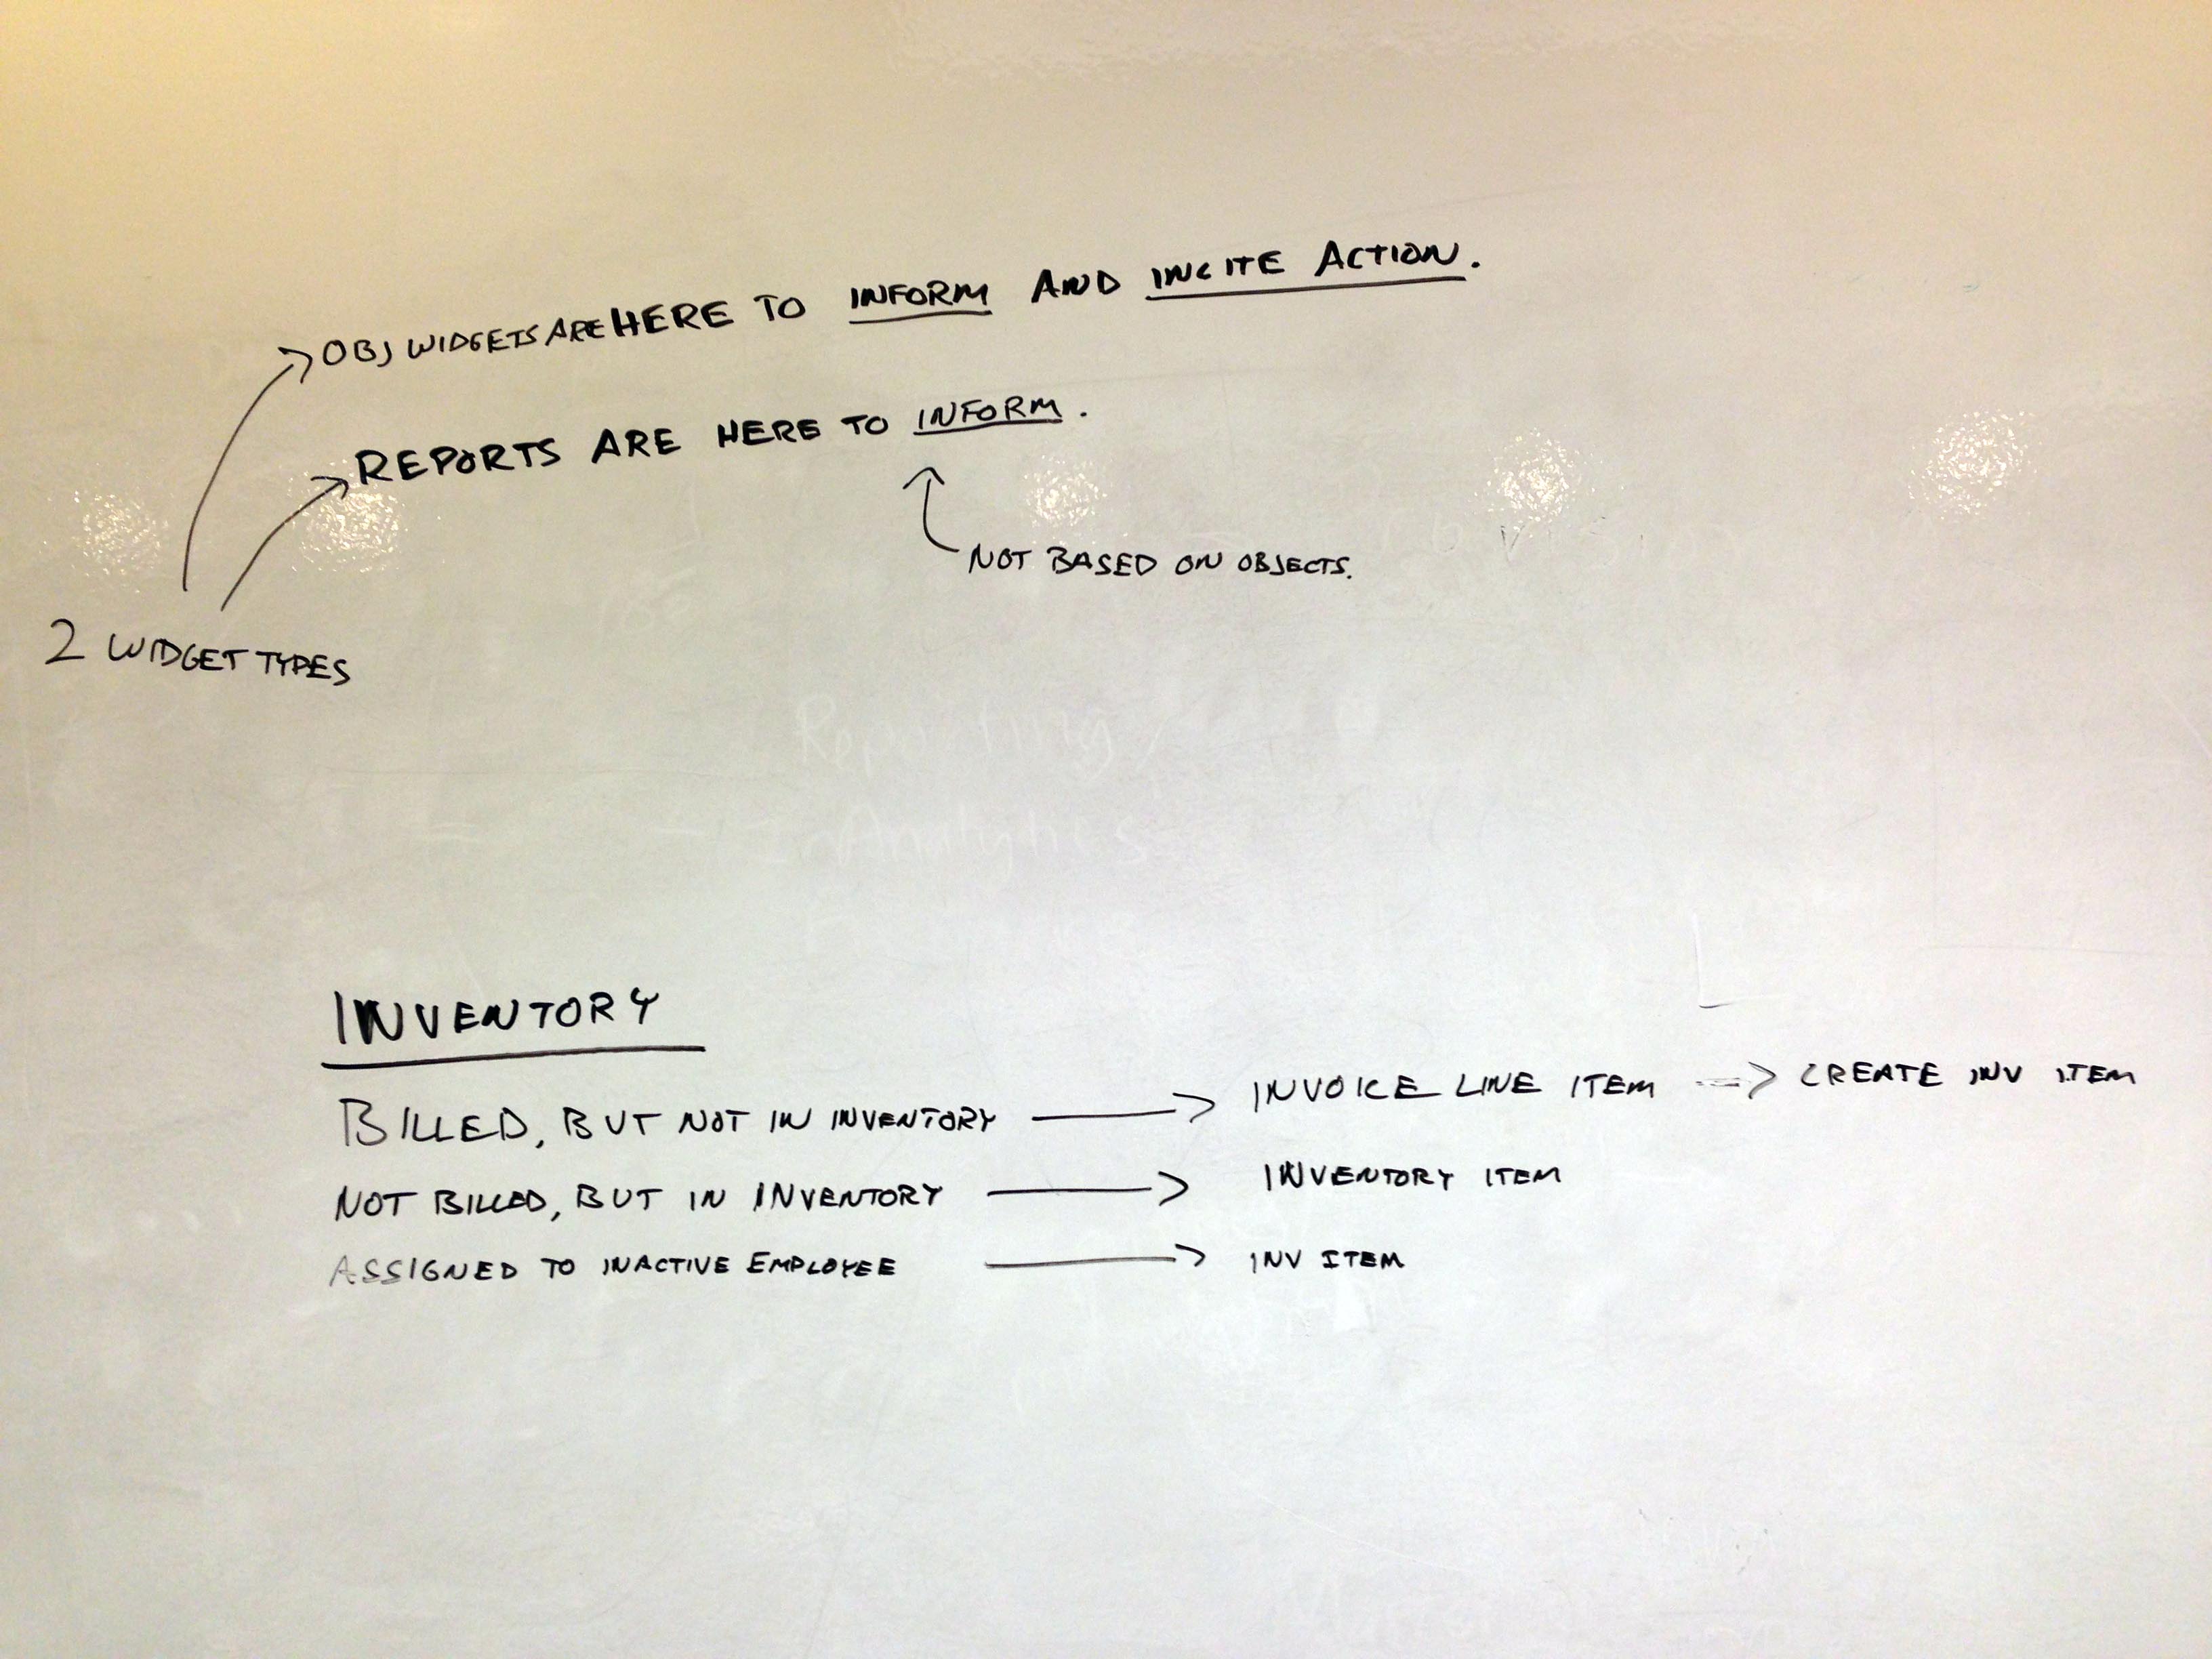 OBJ WIDGETS ARE HERE TO INFORM AND INCITE ACTION.
REPORTS ARE HERE TO INFORM.
NOT BASED ON OBJECTS.
2 WIDGET TYPES
Reporting
Analytics
INVENTORY
BILLED, BUT NOT IN INVENTORY → INVOICE LINE ITEM → CREATE INV ITEM
NOT BILLED, BUT IN INVENTORY → INVENTORY ITEM
ASSIGNED TO INACTIVE EMPLOYEE → INV ITEM